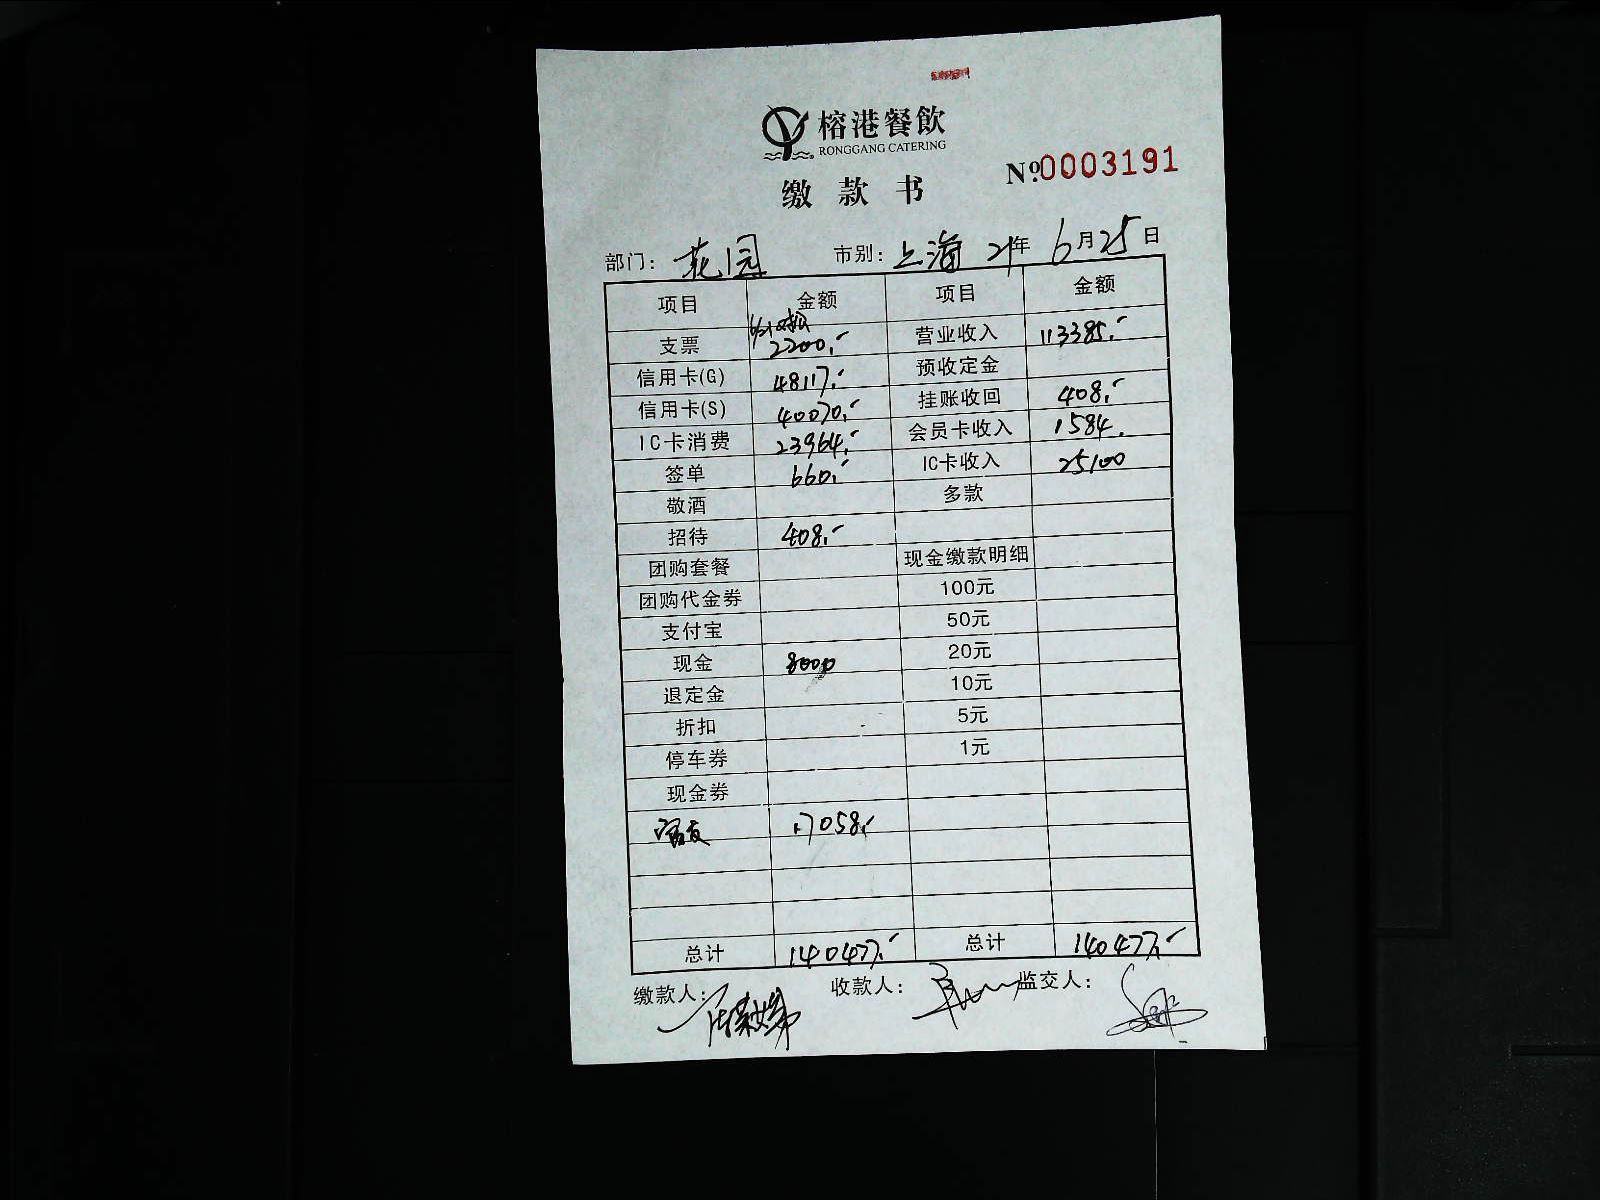 榕港餐飲
RONGGANG CATERING
缴款书
Nº:0003191
部门: 花园 市别: 上海 21年 6月25日
项目 金额 项目 金额
支票 2200.- 营业收入 113385.-
信用卡(G) 48117.- 预收定金
信用卡(S) 40070.- 挂账收回 408.-
IC卡消费 23964.- 会员卡收入 1584.
签单 660.- IC卡收入 25100
敬酒 多款
招待 408.-
团购套餐 现金缴款明细
团购代金券 100元
支付宝 50元
现金 8000 20元
退定金 10元
折扣 5元
停车券 1元
现金券
17058.-
总计 140477.- 总计 140477.-
缴款人: 收款人: 监交人: